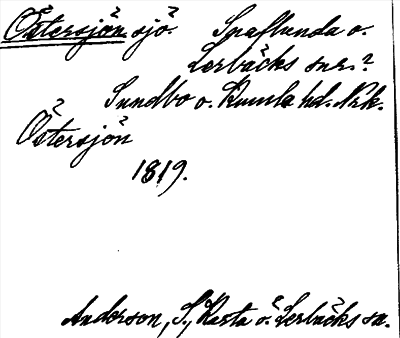 Östersjön sjö. Snaflunda o.
Lerbäcks snr.?
Sundbo o. Kumla hd. Nrk.
Östersjön
1819.
Anderson, S., Karta ö. Lerbäcks sn.